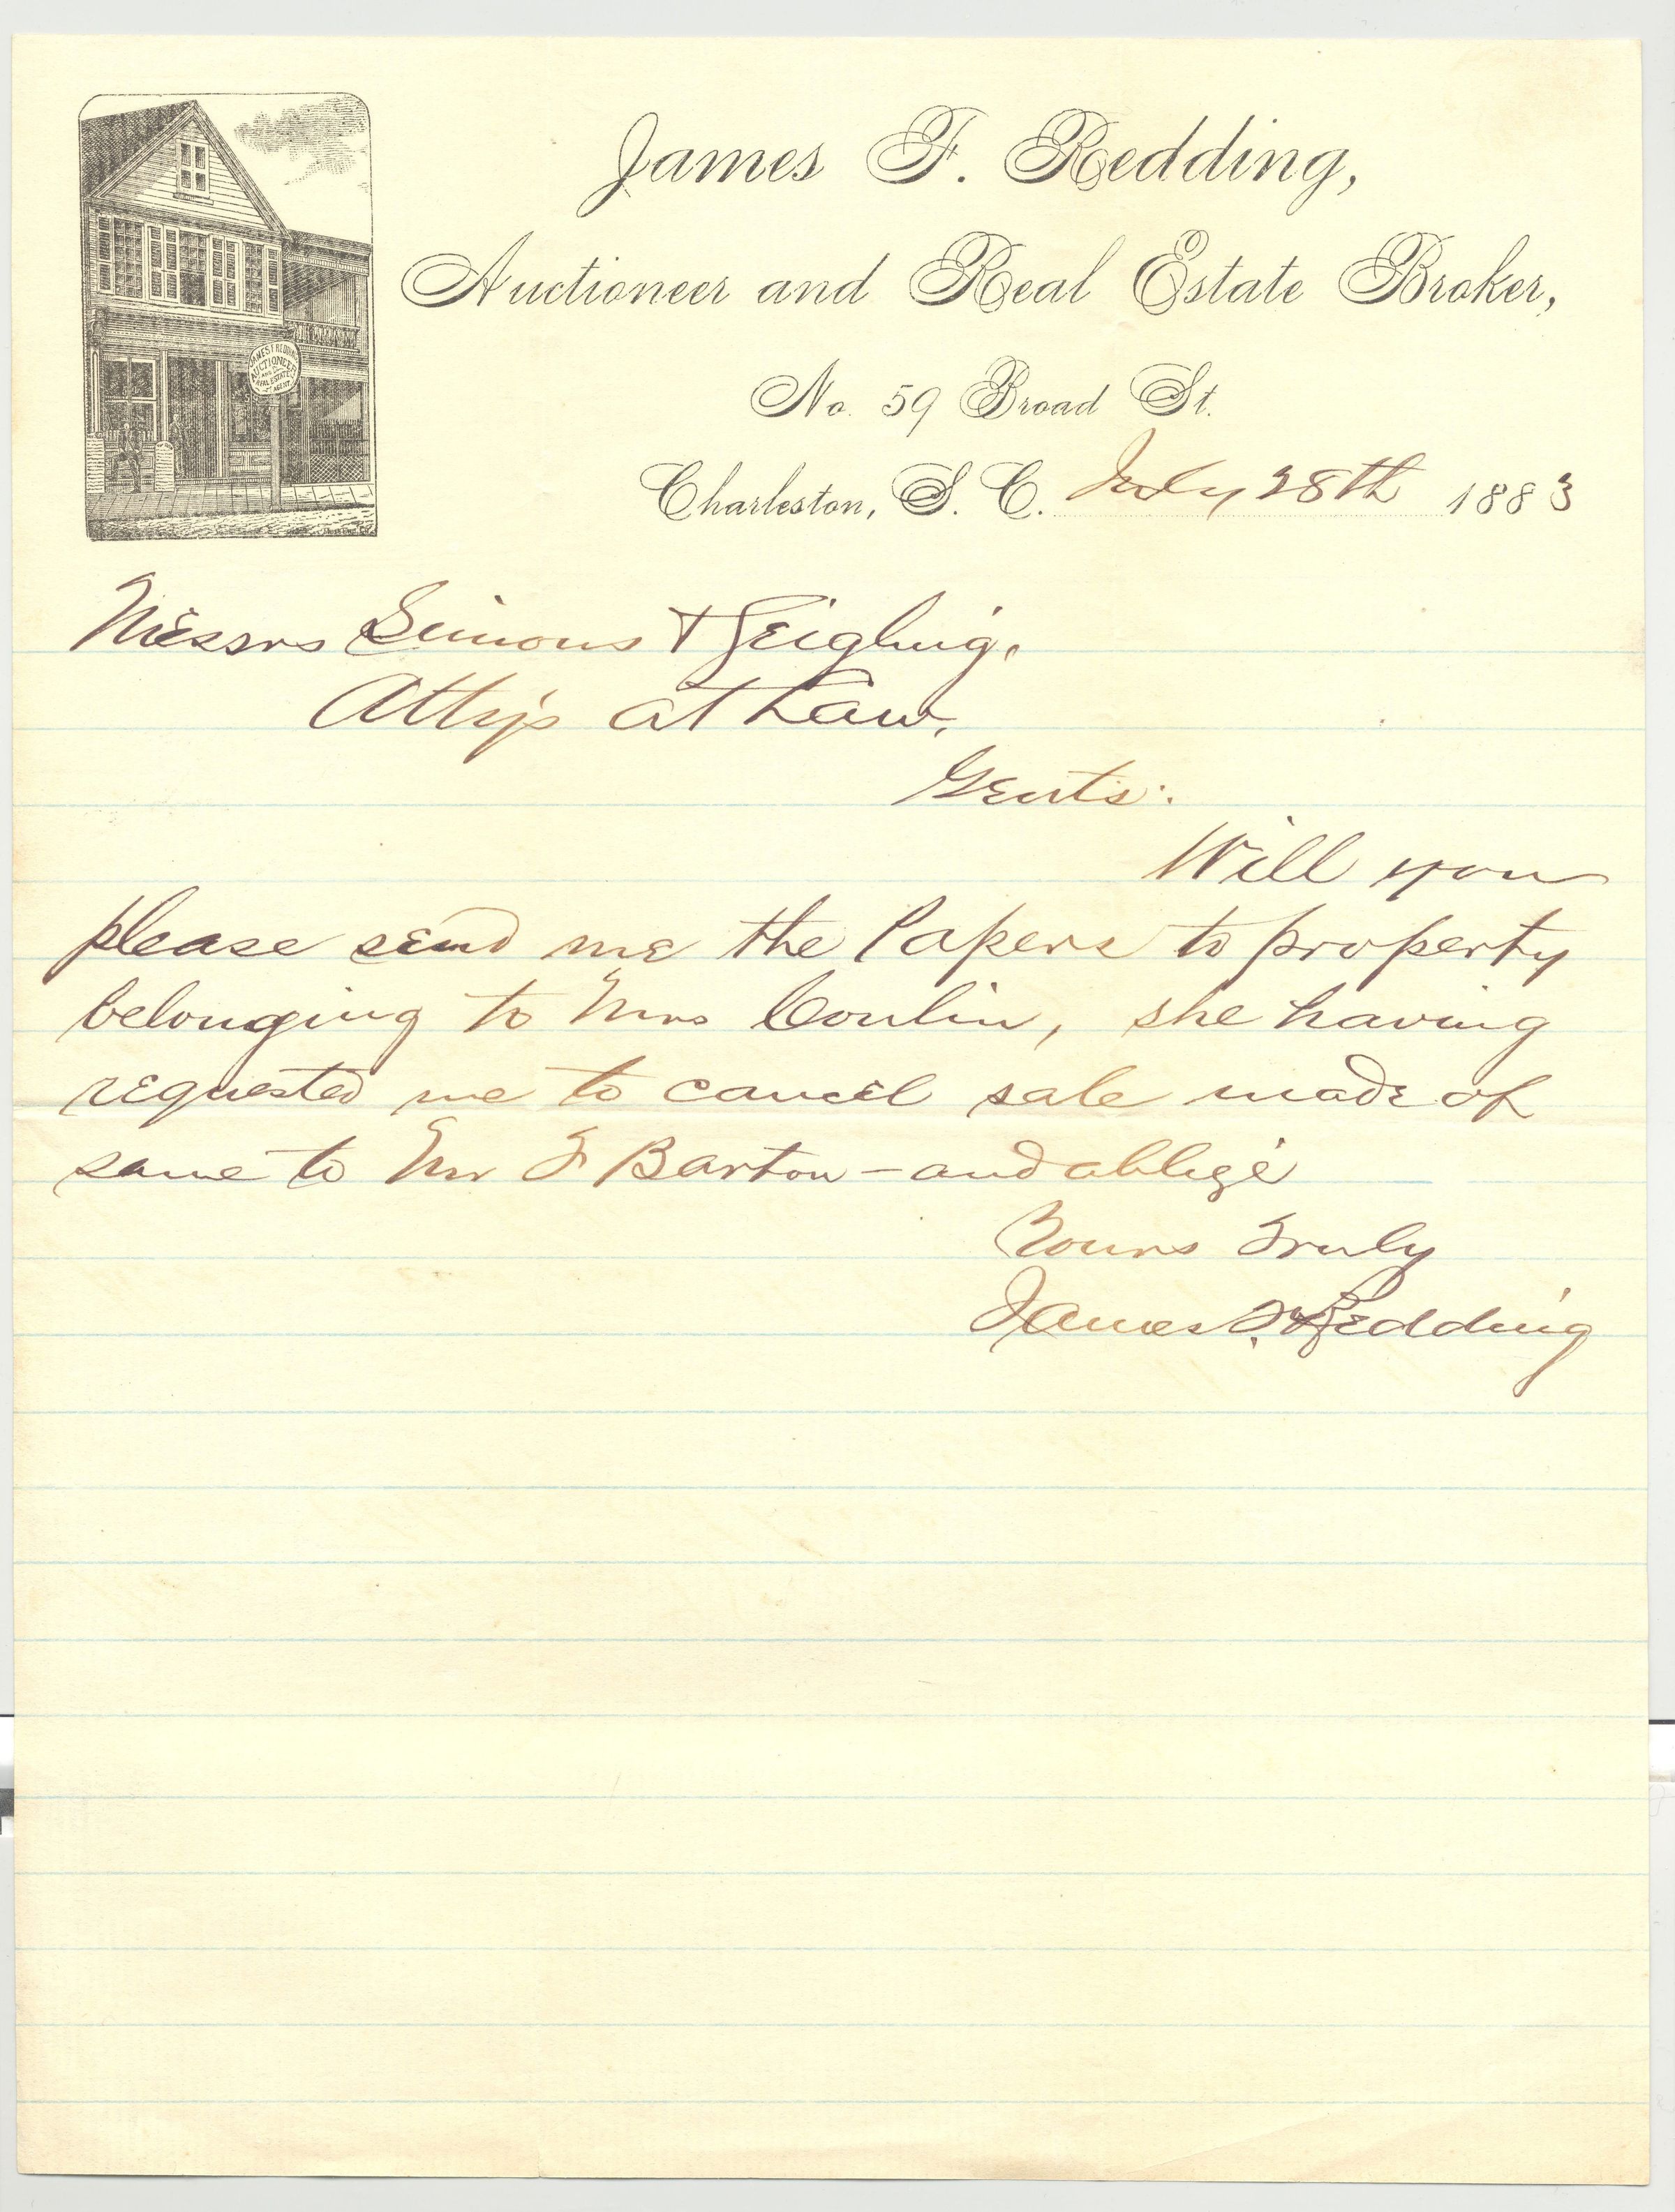 James F. Redding,
Auctioneer and Real Estate Broker,
No. 59 Broad St.
Charleston, S. C. July 28th 1883
JAMES F. REDDING
AUCTIONEER
AND
REAL ESTATE
AGENT.
Messrs Simons &
Atty's at Law,
Gents:
Will you
please send me the Papers to property
belonging to Mrs Conlin, she having
requested me to cancel sale made of
same to Mr F Barton – and oblige
Yours Truly
James F. Redding